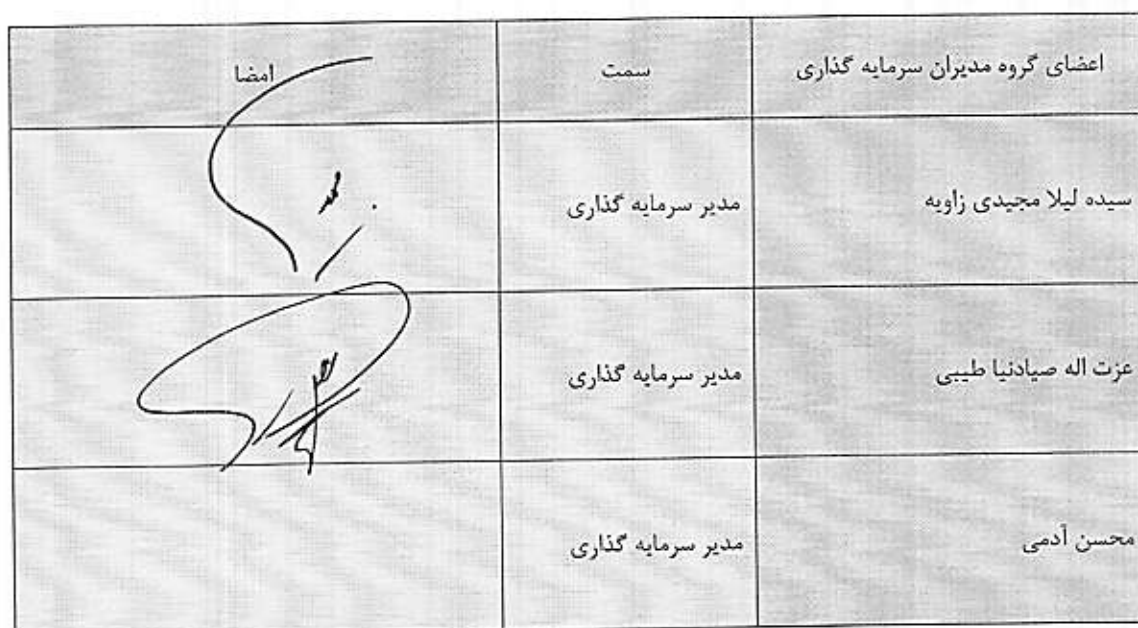 اعضای گروه مدیران سرمایه گذاری سمت امضا
سیده لیلا مجیدی زاویه مدیر سرمایه گذاری
عزت اله صیادنیا طیبی مدیر سرمایه گذاری
محسن آدمی مدیر سرمایه گذاری